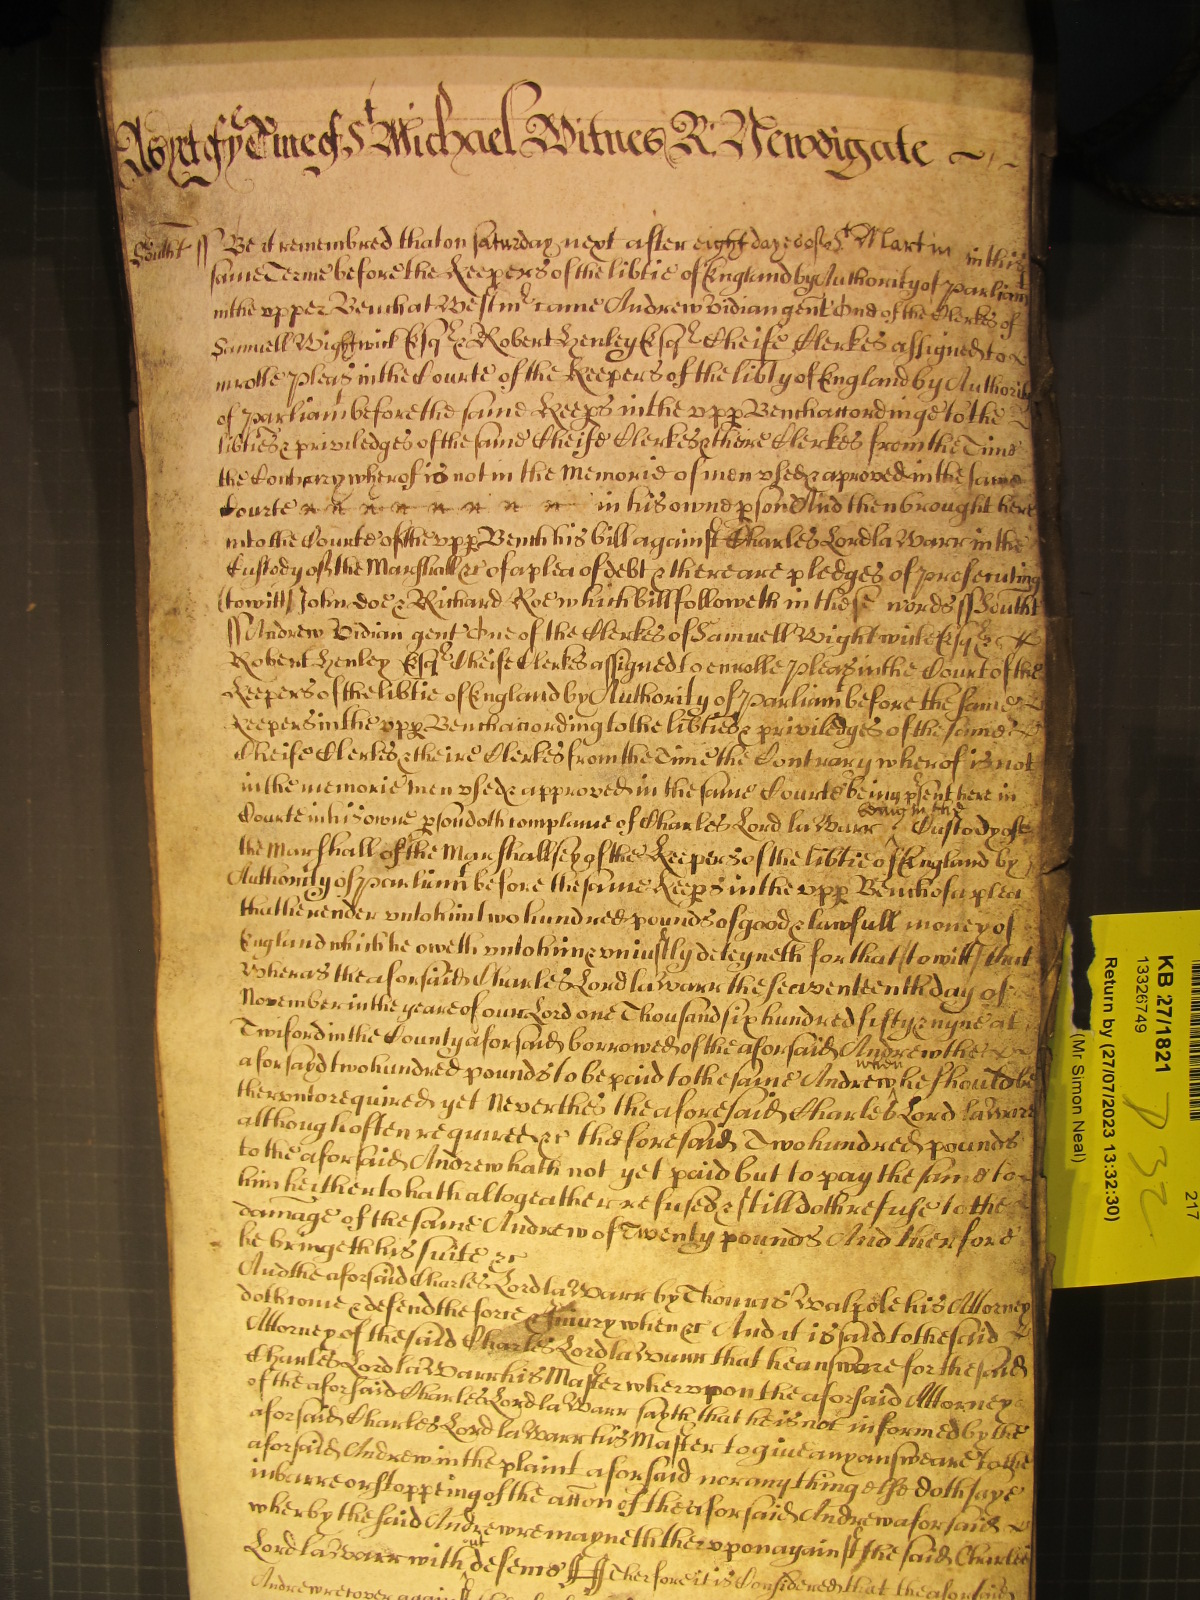 As yet of ye Time of St Michael Witnes R: Newdigate
Southt ss Be it remembred that on saturday next after eight dayes of St Martin in this
same Terme before the Keepers of the libtie of England by Authority of Parliamt
in the vpper Bench at Westmr came Andrew Vidian gent One of the Clerkes of
Samuell Wightwick Esqr & Robert Henley Esqr Cheife Clerkes assigned to
inrolle Pleas in the Courte of the Keepers of the libty of England by Authority
of Parliamt before the same Keeps in the vpp Bench accordinge to the
libties & priviledges of the same Cheife Clerkes & theire Clerkes from the Time
the Contrary wherof is not in the Memorie of men vsed & aproved in the same
Courte in his owne pson And then brought here
into the Courte of the vpp Bench his bill against Charles Lord la Warr in the
Custody of the Marshall &c of a plea of debt & there are pledges of Prosecuting
(to witt) John doe & Richard Roe which bill followeth in these words ss Southt
ss Andrew Vidian gent One of the Clerkes of Samuell Wightwick Esqr &
Robert Henley Esqr Cheife Clerkes assigned to enrolle Pleas in the Court of the
Keepers of the libtie of England by Authority of Parliamt before the same
Keepers in the vpp Bench according to the libties & priviledges of the same
Cheife Clerkes & theire Clerkes from the Time the Contrary wherof is not
in the memorie men vsed & approved in the same Courte being psent here in
Courte in his owne pson doth complaine of Charles Lord la Warr being in the Custody of
the Marshall of the Marshallsey of the Keepers of the libtie of England by
Authority of Parliamt before the same Keeps in the vpp Bench of a plea
that he render vnto him two hundred pounds of good & lawfull money of
England which he oweth vnto him & vniustly deteyneth for that (to witt) that
wheras the aforsaid Charles Lord la Warr the seaventeenth day of
November in the yeare of our Lord one Thousand six hundred fifty & nyne at
Twiford in the County aforsaid borrowed of the aforsaid Andrew the
aforsayd two hundred pounds to be paid to the same Andrew when he should be
therevnto required yet Neverthes the aforesaid Charles Lord la Warr
although often required &c the foresaid Two hundred pounds
to the aforsaid Andrew hath not yet paid but to pay the same to
him heitherto hath altogeather refused & still doth refuse to the
damage of the same Andrew of Twenty pounds And therfore
he bringeth his suite &c
And the aforsaid Charles Lord la Warr by Thomas Walpole his Attorney
doth come & defend the force & Iniury when &c And it is said to the said
Attorney of the said Charles Lord la Warr that he answare for the said
Charles Lord la Warr his Master wherevpon the aforsaid Attorney
of the aforsaid Charles Lord la Warr sayth that he is not informed by the
aforsaid Charles Lord la Warr his Master to give any answeare to the
aforsaid Andrew in the plaint aforsaid nor any thing else doth saye
in barre or stoppeing of the accon of the aforsaid Andrew aforsaid
wherby the said Andrew remayneth therevpon against the said Charles
Lord la Warr with out defence Therfore it is Considered that the aforsaid
Andrew recover against
KB 27/1821
13326749
Return by (27/07/2023 13:32:30)
(Mr Simon Neal)
217